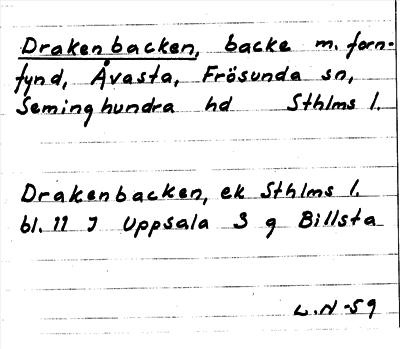 Drakenbacken, backe m. forn-
fynd, Åvasta, Frösunda sn,
Seminghundra hd Sthlms l.
Drakenbacken, ek Sthlms l.
bl. 11 J Uppsala S g Billsta
L. N -59